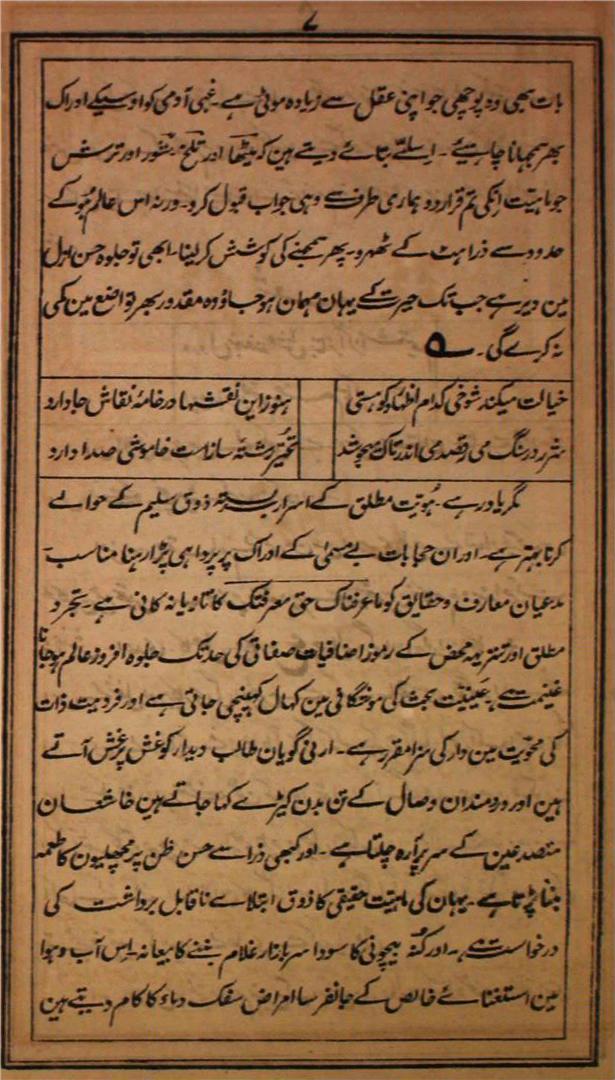 ۷
بات بھی وہ پوچھی جو اپنی عقل سے زیادہ موٹی ہے۔ غبی آدمی کو اوسیکے ادراک
بھر سمجھانا چاہیئے۔ اسلئے بتائے دیتے ہین کہ میٹھا اور تلخ۔ شور اور ترش
جو ماہیت انکی تم قرار دو ہماری طرف سے وہی جواب قبول کرو۔ ورنہ اس عالم ہُو کے
حدود سے ذرا ہٹ کے ٹھہرو۔ پھر سمجھنے کی کوشش کر لینا۔ ابھی تو جلوہ حسن ازل
مین دیر ہے جب تک حیرت کے یہان مہمان ہو جاؤ وہ مقدور بھر تواضع مین کمی
نہ کرے گی۔ ؎
خیالت میکند شوخی کدام اظہار کو ہستی
ہنوز این نقشہا در خامۂ نقاش جا دارد
شرر در سنگ می رقصد می اندر تاک میجوشد
تحیّر رشتۂ ساز است خاموشی صدا دارد
مگر یاد رہے۔ ہُویّت مطلق کے اسرار سربستہ ذوق سلیم کے حوالے
کرنا بہتر ہے۔ اور ان حجابات بے مسمیٰ کے ادراک پر پردا ہی پڑا رہنا مناسب۔
مدعیان معارف و حقایق کو ماعرفناک حق معرفتک کا تازیانہ کافی ہے۔ تجرد
مطلق اور تنزیہ محض کے رموز اضافیات صفاتی کی حد تک جلوہ افروز عالم ہو جانا
غنیمت ہے۔ عَینیّت بحت کی موشگافی مین کھال کھینچی جاتی ہے اور فردیت ذات
کی محویّت مین دار کی سزا مقرر ہے۔ ارنی گویان طالب دیدار کو غش پر غش آتے
ہین اور دردمندان وصال کے تن بدن کیڑے کھا جاتے ہین خاشعان
متصدعین کے سر پر آرہ چلتا ہے۔ اور کبھی ذرا سے حسن ظن پر مچھلیون کا طعمہ
بننا پڑتا ہے۔ یہان کی ماہیّت حقیقی کا ذوق ابتلا سے ناقابل برداشت کی
درخواست ہے۔ اور کُنہ بیچونی کا سودا سر بازار غلام بننے کا بیعانہ۔ اِس آب و ہوا
مین استغنائے خالص کے جانفرسا امراض سفک دماء کا کام دیتے ہین